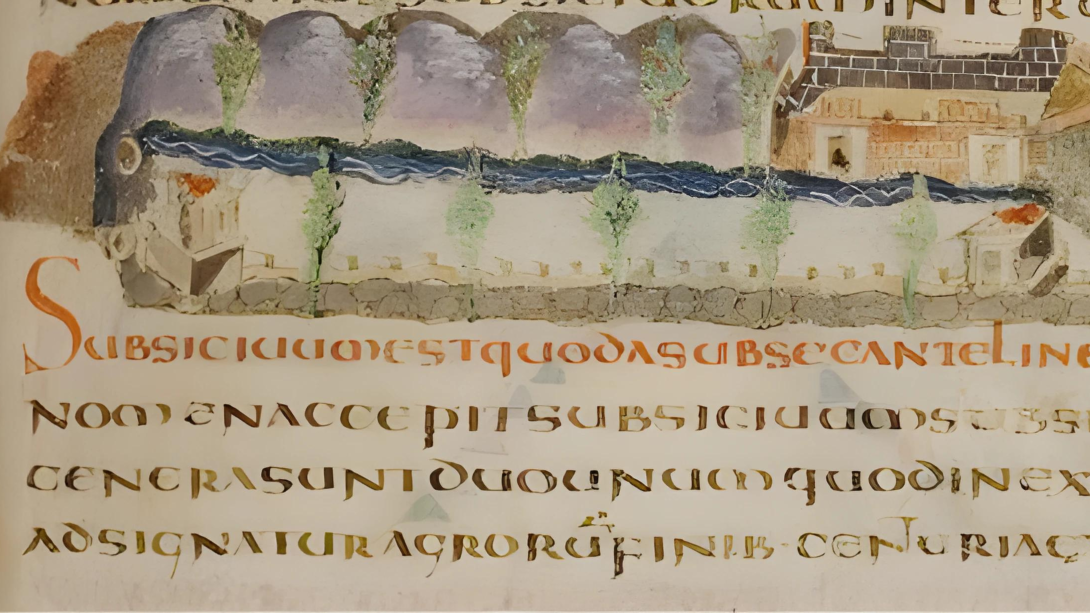 SUBSICIUUMESTQUODASUBSECANTELINE
NOMENACCEPITSUBSICIUUMSUBSI
GENERASUNTDUOUNUMQUODINEX
ADSIGNATURAGRORUFINIB·CENTURIAE